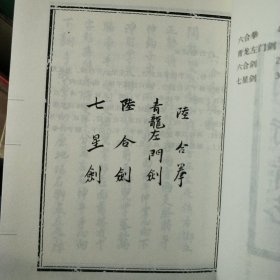 陸合拳
青龍左門劍
陸合劍
七星劍
六合拳
青龙左门剑
六合剑
七星剑